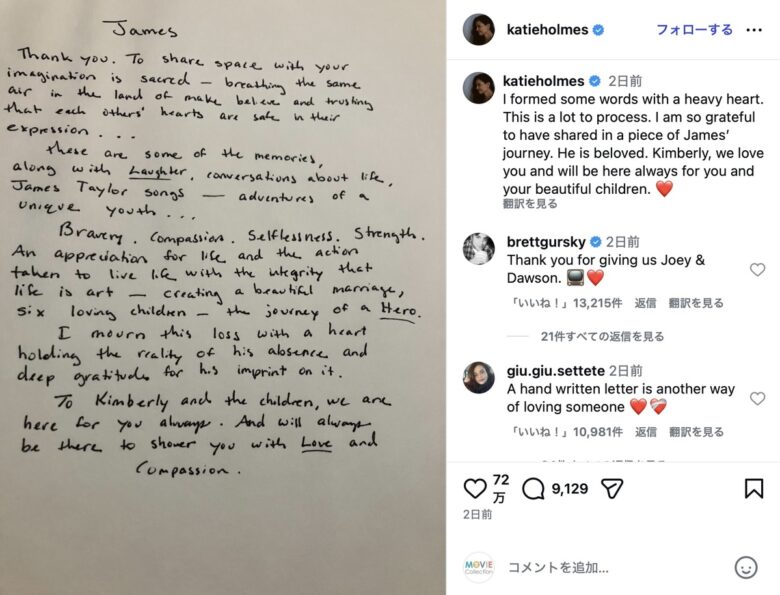 James
Thank you. To share space with your
imagination is sacred — breathing the same
air in the land of make believe and trusting
that each others' hearts are safe in their
expression...
these are some of the memories,
along with Laughter, conversations about life,
James Taylor songs — adventures of a
unique youth...
Bravery. Compassion. Selflessness. Strength.
An appreciation for life and the action
taken to live life with the integrity that
life is art — creating a beautiful marriage,
six loving children — the journey of a Hero.
I mourn this loss with a heart
holding the reality of his absence and
deep gratitude for his imprint on it.
To Kimberly and the children, we are
here for you always. And will always
be there to shower you with Love and
Compassion.
katieholmes フォローする •••
katieholmes 2日前
I formed some words with a heavy heart.
This is a lot to process. I am so grateful
to have shared in a piece of James'
journey. He is beloved. Kimberly, we love
you and will be here always for you and
your beautiful children. ❤️
翻訳を見る
brettgursky 2日前
Thank you for giving us Joey &
Dawson. 📺❤️
「いいね！」13,215件 返信 翻訳を見る
21件すべての返信を見る
giu.giu.settete 2日前
A hand written letter is another way
of loving someone ❤️❤️‍🩹
「いいね！」10,981件 返信 翻訳を見る
72万 9,129
2日前
MOVIE Collection
コメントを追加...